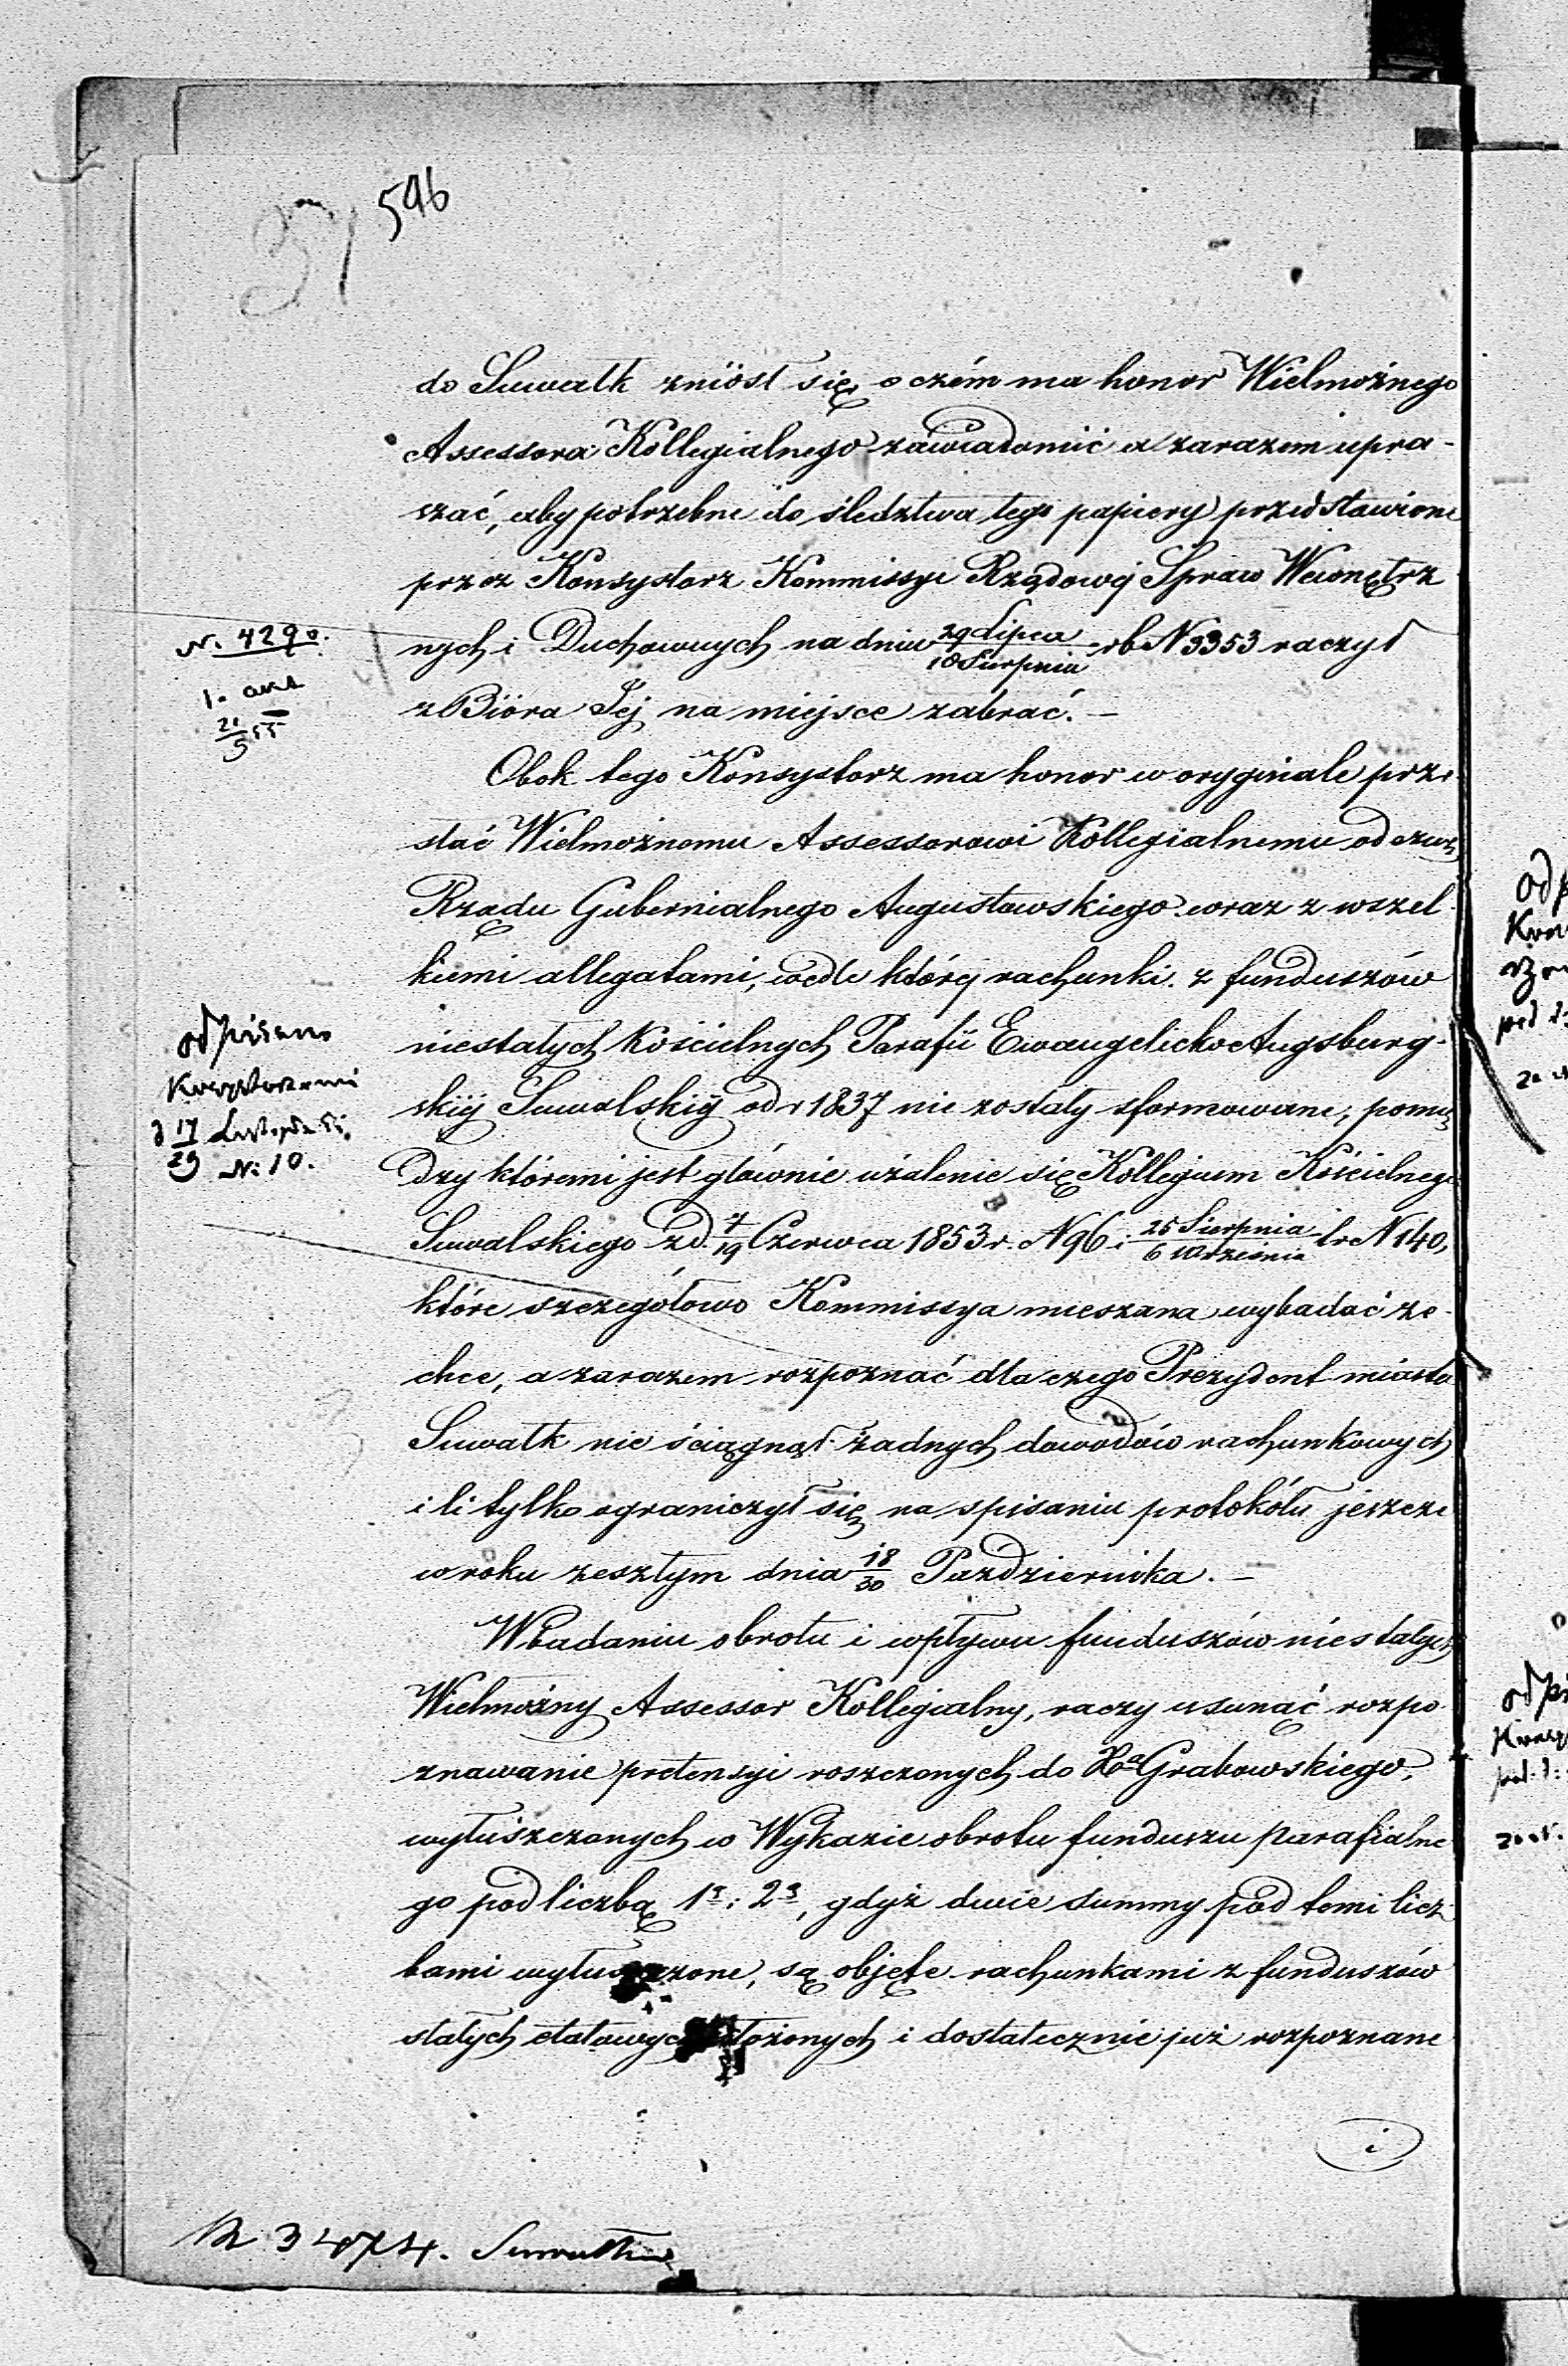 546
do Suwałk zniósł się, o czém ma honor Wielmożnego
Assessora Kollegialnego zawiadomić a zarazem upra-
szać, aby potrzebne do śledztwa tego papiery przedstawione
przez Konsystorz Kommissyi Rządowéj Spraw Wewnętrz
nych i Duchownych na dniu 29 Lipca / 10 Sierpnia rb N 3353 raczył
z Bióra Jéj na miejsce zabrać. —
Obok tego Konsystorz ma honor w oryginale prze-
słać Wielmożnemu Assessorowi Kollegialnemu odezwę
Rządu Gubernialnego Augustowskiego wraz z wszel-
kiemi allegatami, wedle któréj rachunki z funduszów
niestałych Kościelnych Parafii Ewangelicko Augsburg-
skiéj Suwalskiéj od r 1837 nie zostały sformowane, pomię
dzy któremi jest głównie użalenie się Kollegium Kościelnego
Suwalskiego z d. 7/19 Czerwca 1853 r. N 96 i 25 Sierpnia / 6 Września t.r. N 140,
które szczegółowo Kommissya mieszana wybadać ze-
chce, a zarazem rozpoznać dla czego Prezydent miasta
Suwałk nie ściągnął żadnych dowodów rachunkowych
i li tylko ograniczył się na spisaniu protokółu jeszcze
w roku zeszłym dnia 18/30 Października. —
W badaniu obrotu i wpływu funduszów niestałych
Wielmożny Assessor Kollegialny, raczy usunąć rozpo
znawanie pretensyi roszczonych do Xa Grabowskiego,
wyłuszczonych w Wykazie obrotu funduszu parafialne
go pod liczbą 1ą i 2ą, gdyż dwie summy pod temi licz
bami wyłuszczone, są objęte rachunkami z funduszów
stałych etatowych złożonych i dostatecznie już rozpoznane
i
N. 4290.
21/5 55
odpisano
Konsystorzowi
d 17/29 Listopada 55.
N: 10.
N 34074. Suwałki